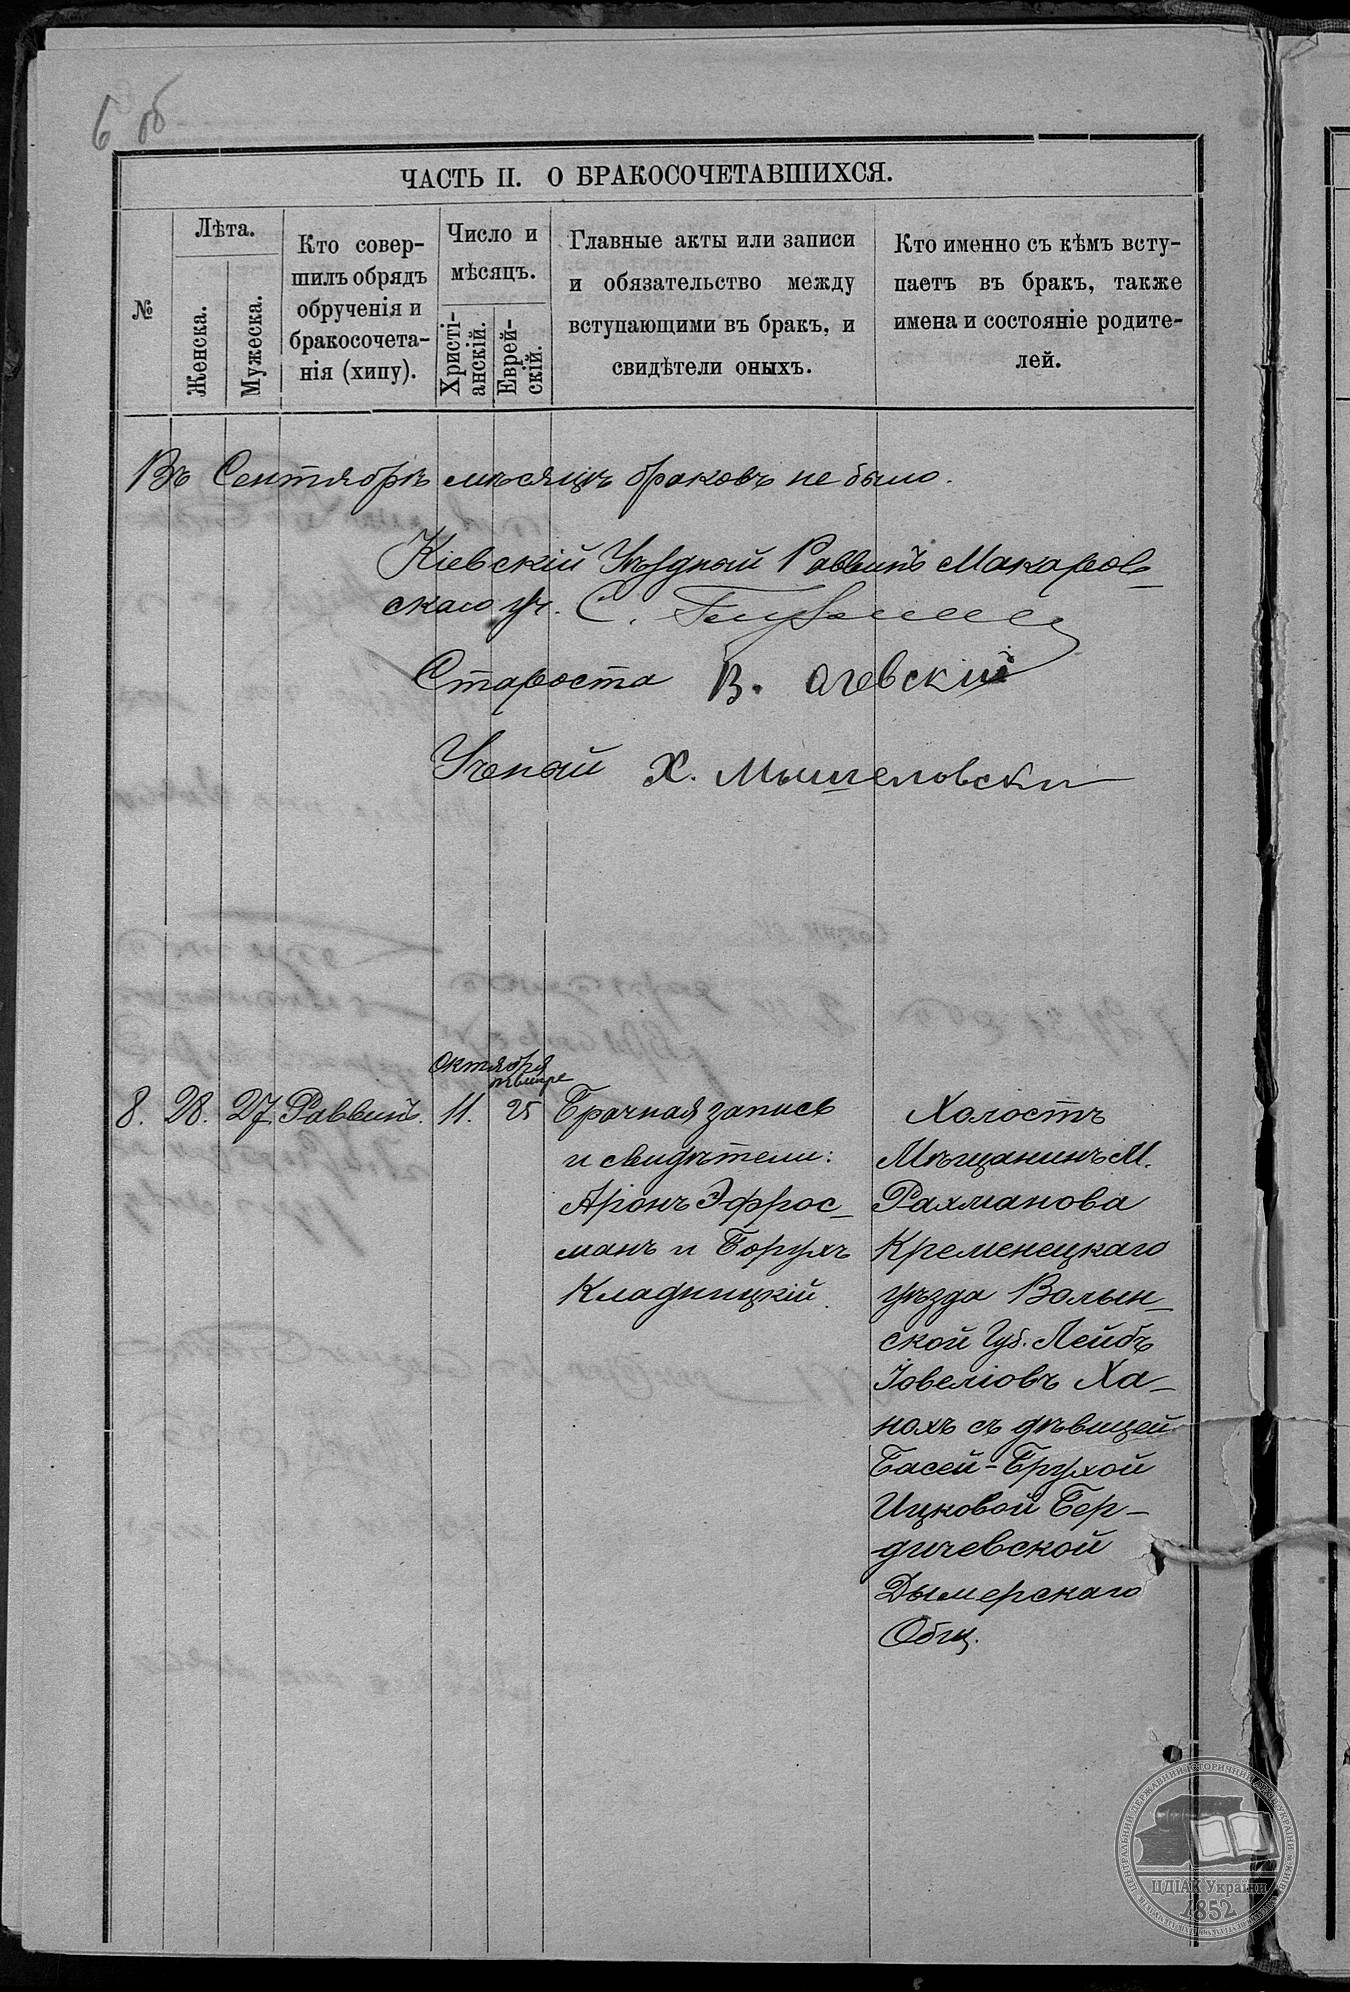 6 об
ЧАСТЬ II. О БРАКОСОЧЕТАВШИХСЯ.
№
Лѣта.
Женска.
Мужеска.
Кто совер-
шилъ обрядъ
обрученія и
бракосочета-
нія (хипу).
Число и
мѣсяцъ.
Христі-
анскій.
Еврей-
скій.
Главные акты или записи
и обязательство между
вступающими въ бракъ, и
свидѣтели оныхъ.
Кто именно съ кѣмъ всту-
паетъ въ бракъ, также
имена и состояніе родите-
лей.
Въ Сентябрѣ мѣсяцѣ браковъ не было.
Кіевскій Уѣздный Раввинъ Макаров-
скаго уч. С.
Староста В. Агевскій
Ученый Х. Мышеловски
Октября
8. 28. 27. Раввинъ. 11. 25
Брачная запись
и свидѣтели:
Аронъ Эфрос-
манъ и Борухъ
Кладницкій.
Холостъ
Мѣщанинъ М.
Рахманова
Кременецкаго
уѣзда Волын-
ской Губ. Лейбъ
Іовеліовъ Ха-
нохъ съ дѣвицей
Басей-Брухой
Ицковой Бер-
дичевской
Дымерскаго
Общ.
ЦЕНТРАЛЬНИЙ ДЕРЖАВНИЙ ІСТОРИЧНИЙ АРХІВ УКРАЇНИ, М.КИЇВ
ЦДІАК України
1852